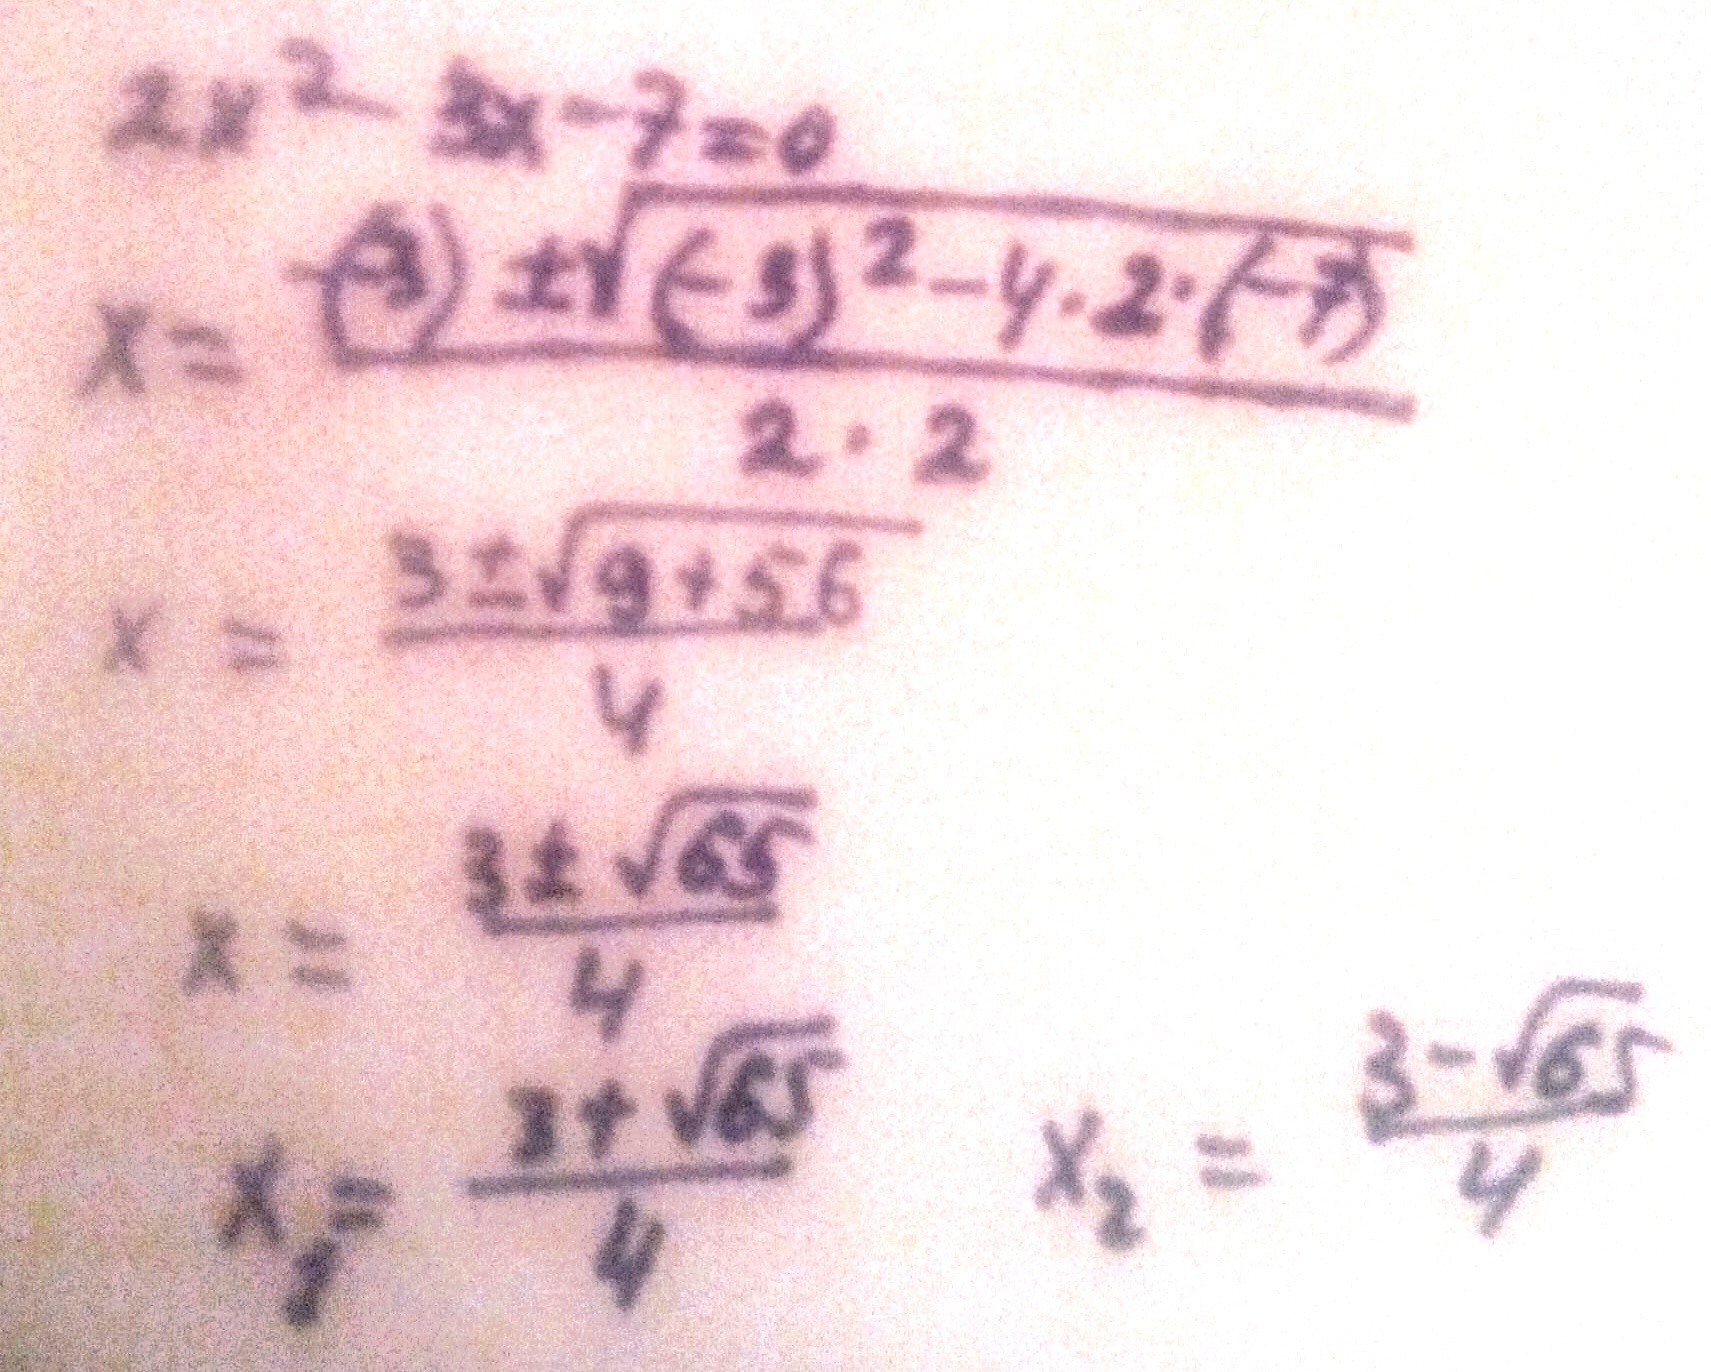 2x² - 3x - 7 = 0
x = (-(-3) ± √((-3)² - 4 · 2 · (-7))) / (2 · 2)
x = (3 ± √(9 + 56)) / 4
x = (3 ± √65) / 4
x₁ = (3 + √65) / 4    x₂ = (3 - √65) / 4